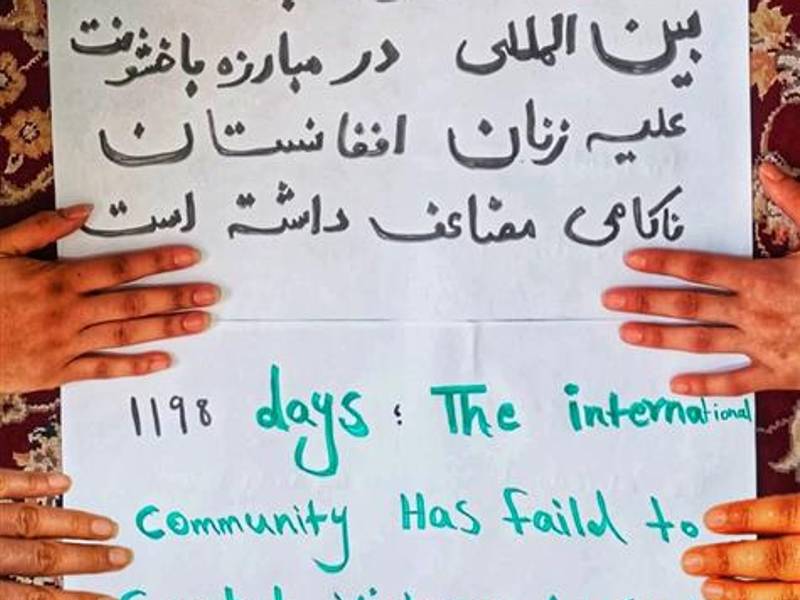 بین المللی در مبارزه باخشونت
علیه زنان افغانستان
ناکامی مضاعف داشته است
1198 days ؛ The international
community Has faild to